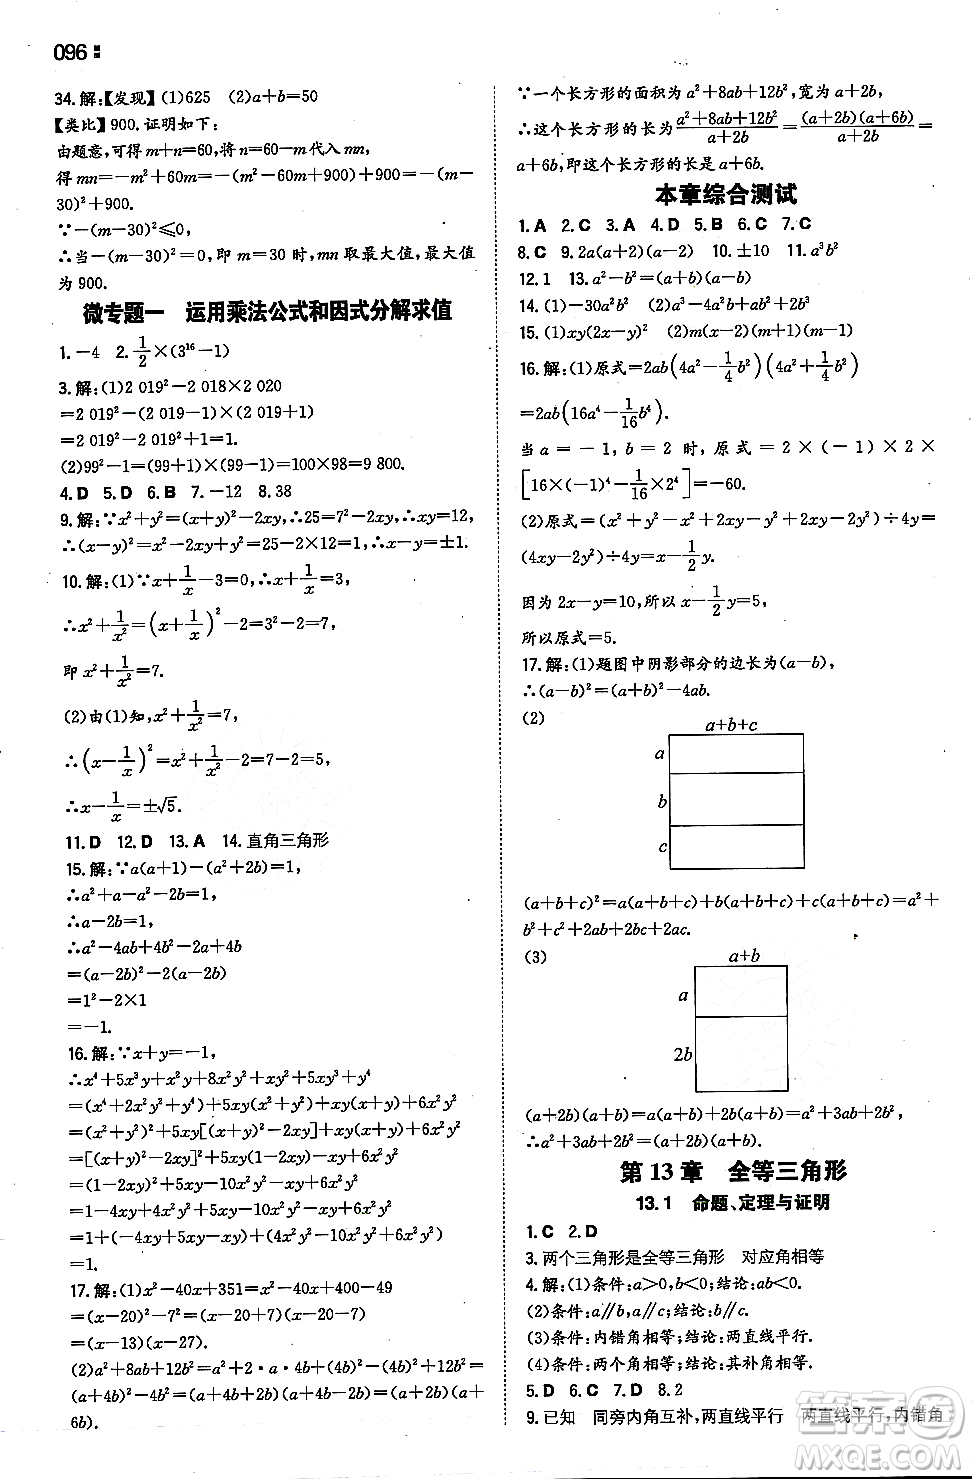 096
34. 解:【发现】(1)625 (2)a+b=50
【类比】900. 证明如下:
由题意,可得m+n=60,将n=60-m代入mn,
得mn=-m²+60m=-(m²-60m+900)+900=-(m-
30)²+900.
∵-(m-30)²≤0,
∴当-(m-30)²=0,即m=30时,mn取最大值,最大值
为900.
微专题一 运用乘法公式和因式分解求值
1. -4 2. 1/2×(3¹⁶-1)
3. 解:(1)2 019²-2 018×2 020
=2 019²-(2 019-1)×(2 019+1)
=2 019²-2 019²+1=1.
(2)99²-1=(99+1)×(99-1)=100×98=9 800.
4. D 5. D 6. B 7. -12 8. 38
9. 解:∵x²+y²=(x+y)²-2xy,∴25=7²-2xy,∴xy=12,
∴(x-y)²=x²-2xy+y²=25-2×12=1,∴x-y=±1.
10. 解:(1)∵x+1/x-3=0,∴x+1/x=3,
∴x²+1/x²=(x+1/x)²-2=3²-2=7,
即x²+1/x²=7.
(2)由(1)知,x²+1/x²=7,
∴(x-1/x)²=x²+1/x²-2=7-2=5,
∴x-1/x=±√5.
11. D 12. D 13. A 14. 直角三角形
15. 解:∵a(a+1)-(a²+2b)=1,
∴a²+a-a²-2b=1,
∴a-2b=1,
∴a²-4ab+4b²-2a+4b
=(a-2b)²-2(a-2b)
=1²-2×1
=-1.
16. 解:∵x+y=-1,
∴x⁴+5x³y+x²y+8x²y²+xy²+5xy³+y⁴
=(x⁴+2x²y²+y⁴)+5xy(x²+y²)+xy(x+y)+6x²y²
=(x²+y²)²+5xy[(x+y)²-2xy]+xy(x+y)+6x²y²
=[(x+y)²-2xy]²+5xy(1-2xy)-xy+6x²y²
=(1-2xy)²+5xy-10x²y²-xy+6x²y²
=1-4xy+4x²y²+5xy-10x²y²-xy+6x²y²
=1+(-4xy+5xy-xy)+(4x²y²-10x²y²+6x²y²)
=1.
17. 解:(1)x²-40x+351=x²-40x+400-49
=(x-20)²-7²=(x-20+7)(x-20-7)
=(x-13)(x-27).
(2)a²+8ab+12b²=a²+2·a·4b+16b²-4b²=
(a+4b)²-4b²=(a+4b+2b)(a+4b-2b)=(a+2b)(a+
6b).
∵一个长方形的面积为a²+8ab+12b²,宽为a+2b,
∴这个长方形的长为(a²+8ab+12b²)/(a+2b)=(a+2b)(a+6b)/(a+2b)=
a+6b,即这个长方形的长是a+6b.
本章综合测试
1. A 2. C 3. A 4. D 5. B 6. C 7. C
8. C 9. 2a(a+2)(a-2) 10. ±10 11. a³b²
12. 1 13. a²-b²=(a+b)(a-b)
14. (1)-30a²b² (2)a³-4a²b²+ab²+3b³
15. (1)xy(2x-y)² (2)m(x-2)(m+1)(m-1)
16. 解:(1)原式=2ab(4a²-1/4b²)(4a²+1/4b²)
=2ab(16a⁴-1/16b⁴).
当a=-1,b=2时,原式=2×(-1)×2×
[16×(-1)⁴-1/16×2⁴]=-60.
(2)原式=(x²+y²-x²+2xy-y²+2xy-2y²)÷4y=
(4xy-2y²)÷4y=x-1/2y.
因为2x-y=10,所以x-1/2y=5,
所以原式=5.
17. 解:(1)题图中阴影部分的边长为(a-b),
∴(a-b)²=(a+b)²-4ab.
(2)
a+b+c
a
b
c
(a+b+c)²=a(a+b+c)+b(a+b+c)+c(a+b+c)=a²+
b²+c²+2ab+2bc+2ac.
(3)
a+b
a
2b
(a+2b)(a+b)=a(a+b)+2b(a+b)=a²+3ab+2b²,
∴a²+3ab+2b²=(a+2b)(a+b).
第13章 全等三角形
13.1 命题、定理与证明
1. C 2. D
3. 两个三角形是全等三角形 对应角相等
4. 解:(1)条件:a>0,b<0;结论:ab<0.
(2)条件:a∥b,a∥c;结论:b∥c.
(3)条件:内错角相等;结论:两直线平行.
(4)条件:两个角相等;结论:其补角相等.
5. D 6. C 7. D 8. 2
9. 已知 同旁内角互补,两直线平行 两直线平行,内错角
答案圈
MXQE.COM